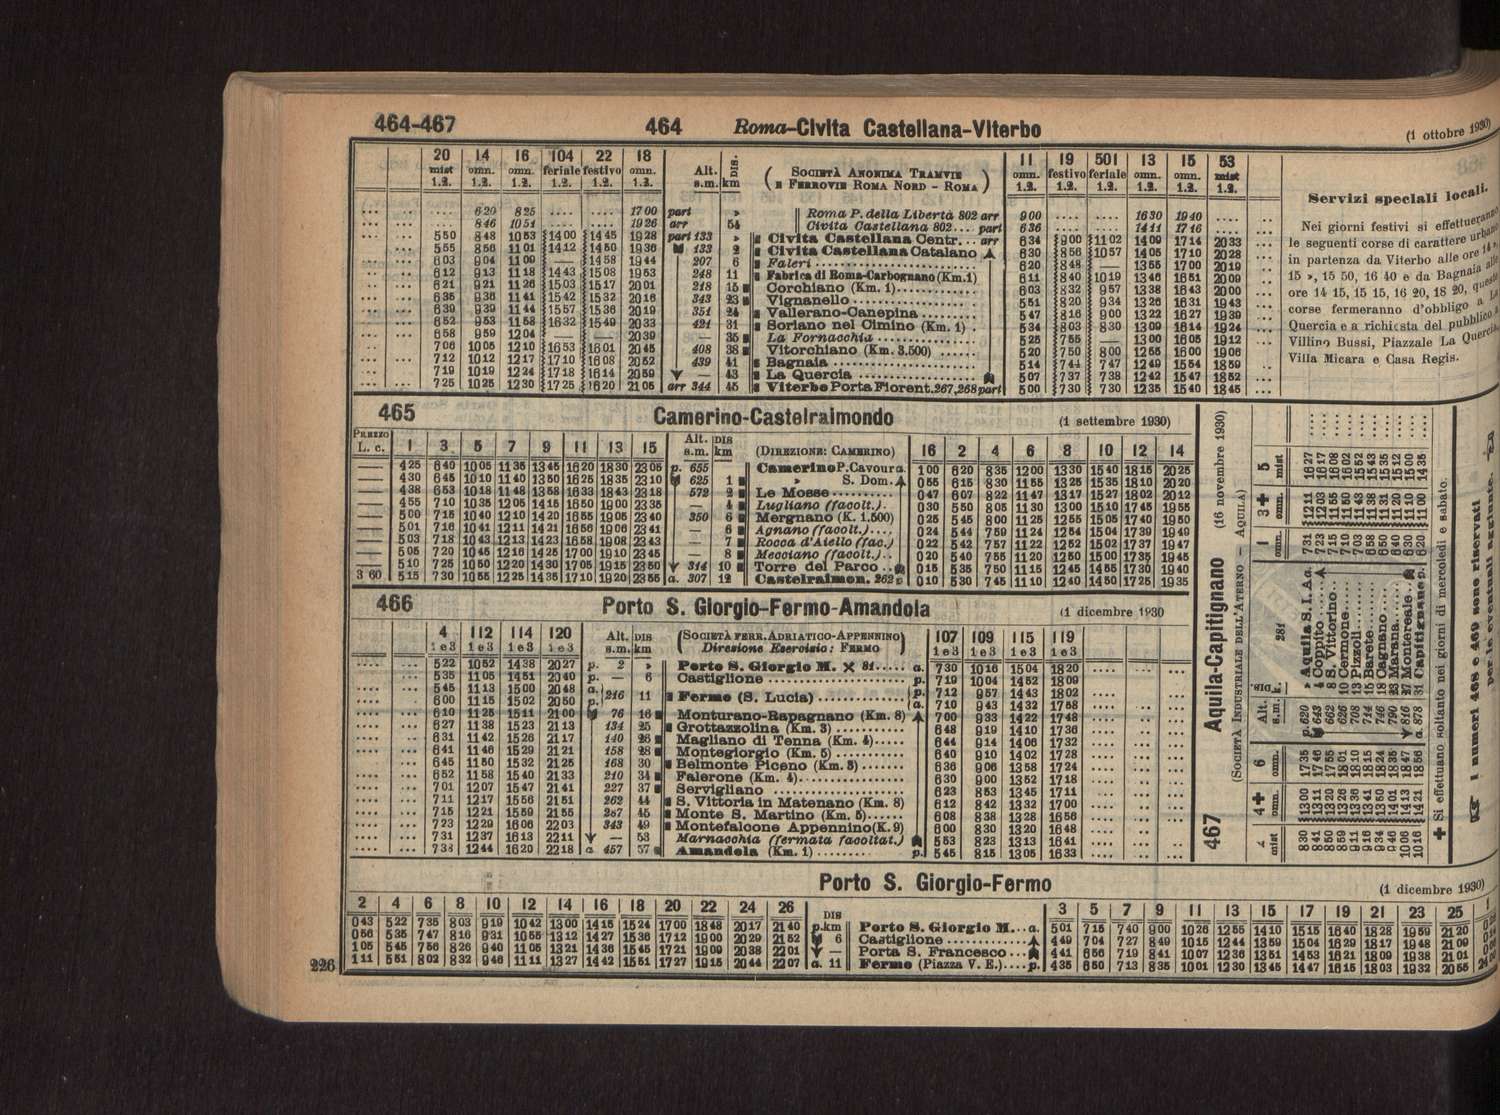 464-467 464 Roma-Civita Castellana-Viterbo (1 ottobre 1930)
20 14 16 104 22 18 Alt. DIS. ( SOCIETÀ ANONIMA TRAMVIE 11 19 501 13 15 53
mist omn. omn. feriale festivo omn. s.m. km E FERROVIE ROMA NORD - ROMA ) omn. festivo feriale omn. omn. mist
1.2. 1.2. 1.2. 1.2. 1.2. 1.2. 1.2. 1.2. 1.2. 1.2. 1.2. 1.2.
... .. .... 6 20 8 25 .... .... 17 00 part » Roma P. della Libertà 802 arr 9 00 .... .... 16 30 19 40 .... ..
... .. .... 8 46 10 51 .... .... 19 26 arr 54 Civita Castellana 802.... part 6 36 .... .... 14 11 17 16 .... ..
5 50 8 48 10 53 14 00 14 45 19 28 part 133 » Civita Castellana Centr... arr 6 34 9 00 11 02 14 09 17 14 20 33
5 55 8 56 11 01 14 12 14 50 19 36 133 2 Civita Castellana Catalano 6 30 8 56 10 57 14 05 17 10 20 28
6 03 9 04 11 09 — 14 58 19 44 207 6 Faleri 6 20 8 48 — 13 55 17 00 20 19
6 12 9 13 11 18 14 43 15 08 19 53 248 11 Fabrica di Roma-Carbognano (Km.1) 6 11 8 40 10 19 13 46 16 51 20 09
6 21 9 21 11 26 15 03 15 17 20 01 218 15 Corchiano (Km. 1) 6 03 8 32 9 57 13 38 16 43 20 00
6 35 9 36 11 41 15 42 15 32 20 16 343 23 Vignanello 5 51 8 20 9 34 13 26 16 31 19 43
6 39 9 39 11 44 15 57 15 36 20 19 351 24 Vallerano-Canepina 5 47 8 16 9 00 13 22 16 27 19 39
6 52 9 53 11 58 16 32 15 49 20 33 421 31 Soriano nel Cimino (Km. 1) 5 34 8 03 8 30 13 09 16 14 19 24
6 58 9 59 12 04 — — 20 39 — 35 La Fornacchia 5 25 7 55 — 13 00 16 05 19 12
7 06 10 05 12 10 16 53 16 01 20 45 408 38 Vitorchiano (Km. 3.500) 5 20 7 50 8 00 12 55 16 00 19 06
7 12 10 12 12 17 17 10 16 08 20 52 439 41 Bagnaia 5 14 7 44 7 47 12 49 15 54 18 59
7 19 10 19 12 24 17 18 16 14 20 59 — 43 La Quercia 5 07 7 37 7 38 12 42 15 47 18 52
7 25 10 25 12 30 17 25 16 20 21 05 arr 344 45 Viterbo Porta Fiorent. 267,268 part 5 00 7 30 7 30 12 35 15 40 18 45
Servizi speciali locali.
Nei giorni festivi si effettueranno
le seguenti corse di carattere urbano
in partenza da Viterbo alle ore 14 »,
15 », 15 50, 16 40 e da Bagnaia alle
ore 14 15, 15 15, 16 20, 18 20, queste
corse fermeranno d'obbligo a La
Quercia e a richiesta del pubblico a
Villino Bussi, Piazzale La Quercia,
Villa Micara e Casa Regis.
465 Camerino-Castelraimondo (1 settembre 1930)
PREZZO L. c. 1 3 5 7 9 11 13 15 Alt. s.m. DIS km (DIREZIONE: CAMERINO) 16 2 4 6 8 10 12 14
— 4 25 6 40 10 05 11 35 13 45 16 20 18 30 23 05 p. 655 Camerino P. Cavour a. 1 00 6 20 8 35 12 00 13 30 15 40 18 15 20 25
— 4 30 6 45 10 10 11 40 13 50 16 25 18 35 23 10 625 1 » S. Dom. 0 55 6 15 8 30 11 55 13 25 15 35 18 10 20 20
— 4 38 6 53 10 18 11 48 13 58 16 33 18 43 23 18 572 2 Le Mosse 0 47 6 07 8 22 11 47 13 17 15 27 18 02 20 12
— 4 55 7 10 10 35 12 05 14 15 16 50 19 00 23 35 — 4 Lugliano (facolt.) 0 30 5 50 8 05 11 30 13 00 15 10 17 45 19 55
— 5 00 7 15 10 40 12 10 14 20 16 55 19 05 23 40 350 6 Mergnano (K. 1.500) 0 25 5 45 8 00 11 25 12 55 15 05 17 40 19 50
— 5 01 7 16 10 41 12 11 14 21 16 56 19 06 23 41 — 6 Agnano (facolt.) 0 24 5 44 7 59 11 24 12 54 15 04 17 39 19 49
— 5 03 7 18 10 43 12 13 14 23 16 58 19 08 23 43 7 Rocca d'Aiello (fac.) 0 22 5 42 7 57 11 22 12 52 15 02 17 37 19 47
— 5 05 7 20 10 45 12 15 14 25 17 00 19 10 23 45 — 8 Mecciano (facolt.) 0 20 5 40 7 55 11 20 12 50 15 00 17 35 19 45
— 5 10 7 25 10 50 12 20 14 30 17 05 19 15 23 50 314 10 Torre del Parco 0 15 5 35 7 50 11 15 12 45 14 55 17 30 19 40
3 60 5 15 7 30 10 55 12 25 14 35 17 10 19 20 23 55 a. 307 12 Castelraimon. 262 p 0 10 5 30 7 45 11 10 12 40 14 50 17 25 19 35
466 Porto S. Giorgio-Fermo-Amandola (1 dicembre 1930
4 112 114 120 Alt. DIS (SOCIETÀ FERR. ADRIATICO-APPENNINO) 107 109 115 119
1 e 3 1 e 3 1 e 3 1 e 3 s.m. km Direzione Esercizio: FERMO 1 e 3 1 e 3 1 e 3 1 e 3
5 22 10 52 14 38 20 27 p. 2 » Porto S. Giorgio M. 81 a. 7 30 10 16 15 04 18 20
5 35 11 05 14 51 20 40 p. — 6 Castiglione p. 7 19 10 04 14 52 18 09
5 45 11 13 15 00 20 48 a. 216 11 Fermo (S. Lucia) p. 7 12 9 57 14 43 18 02
6 00 11 15 15 02 20 50 p. a. 7 10 9 43 14 32 17 58
6 10 11 25 15 11 21 00 76 16 Monturano-Rapagnano (Km. 8) 7 00 9 33 14 22 17 48
6 27 11 38 15 23 21 13 134 25 Grottazzolina (Km. 3) 6 48 9 19 14 10 17 36
6 31 11 42 15 26 21 17 140 26 Magliano di Tenna (Km. 4) 6 44 9 14 14 06 17 32
6 41 11 46 15 29 21 21 158 28 Montegiorgio (Km. 5) 6 40 9 10 14 02 17 28
6 45 11 50 15 32 21 25 168 30 Belmonte Piceno (Km. 3) 6 36 9 06 13 58 17 24
6 52 11 58 15 40 21 33 210 34 Falerone (Km. 4) 6 30 9 00 13 52 17 18
7 01 12 07 15 47 21 41 227 37 Servigliano 6 23 8 53 13 45 17 11
7 11 12 17 15 56 21 51 262 44 S. Vittoria in Matenano (Km. 8) 6 12 8 42 13 32 17 00
7 15 12 21 15 59 21 55 267 45 Monte S. Martino (Km. 5) 6 08 8 38 13 28 16 56
7 23 12 29 16 06 22 03 343 49 Montefalcone Appennino (K. 9) 6 00 8 30 13 20 16 48
7 31 12 37 16 13 22 11 — 53 Marnacchia (fermata facoltat.) 5 53 8 23 13 13 16 41
7 38 12 44 16 20 22 18 a 457 57 Amandola (Km. 1) p. 5 45 8 15 13 05 16 33
467 Aquila-Capitignano (16 novembre 1930)
(SOCIETÀ INDUSTRIALE DELL'ATERNO — AQUILA)
2 mist 4 omn. 6 omn. Alt. s.m. DIS. 281 1 omn. 3 omn. 5 mist
8 30 13 00 17 35 p. 620 » Aquila S. I. A a. 7 31 12 11 16 27
8 41 13 11 17 46 643 4 Coppito 7 23 12 03 16 17
8 50 13 20 17 55 662 8 S. Vittorino 7 15 11 55 16 08
8 59 13 26 18 01 626 10 Cermone 7 10 11 50 16 02
9 11 13 36 18 10 708 13 Pizzoli 7 03 11 43 15 52
9 16 13 41 18 15 714 15 Barete 6 58 11 38 15 43
9 34 13 50 18 24 746 18 Cagnano 6 50 11 31 15 35
9 46 14 01 18 35 790 23 Marana 6 40 11 20 15 12
10 06 14 13 18 47 816 27 Montereale 6 30 11 10 15 00
10 16 14 21 18 56 a. 878 31 Capitignano p. 6 20 11 00 14 35
✚ Si effettuano soltanto nei giorni di mercoledì e sabato.
I numeri 468 e 469 sono riservati
per le eventuali aggiunte.
Porto S. Giorgio-Fermo (1 dicembre 1930)
2 4 6 8 10 12 14 16 18 20 22 24 26 DIS 3 5 7 9 11 13 15 17 19 21 23 25 1
0 43 5 22 7 35 8 03 9 19 10 42 13 00 14 15 15 24 17 00 18 48 20 17 21 40 p. km Porto S. Giorgio M. a. 5 01 7 15 7 40 9 00 10 26 12 55 14 10 15 15 16 40 18 28 19 59 21 20
0 56 5 35 7 47 8 16 9 31 10 55 13 12 14 27 15 36 17 12 19 00 20 29 21 52 6 Castiglione 4 49 7 04 7 27 8 49 10 15 12 44 13 59 15 04 16 29 18 17 19 48 21 09
1 05 5 45 7 56 8 26 9 40 11 05 13 21 14 36 15 45 17 21 19 09 20 38 22 01 — Porta S. Francesco 4 41 6 56 7 19 8 41 10 07 12 36 13 51 14 53 16 21 18 09 19 38 21 01
1 11 5 51 8 02 8 32 9 46 11 11 13 27 14 42 15 51 17 27 19 15 20 44 22 07 a. 11 Fermo (Piazza V. E.) p. 4 35 6 50 7 13 8 35 10 01 12 30 13 45 14 47 16 15 18 03 19 32 20 55 24 00
226